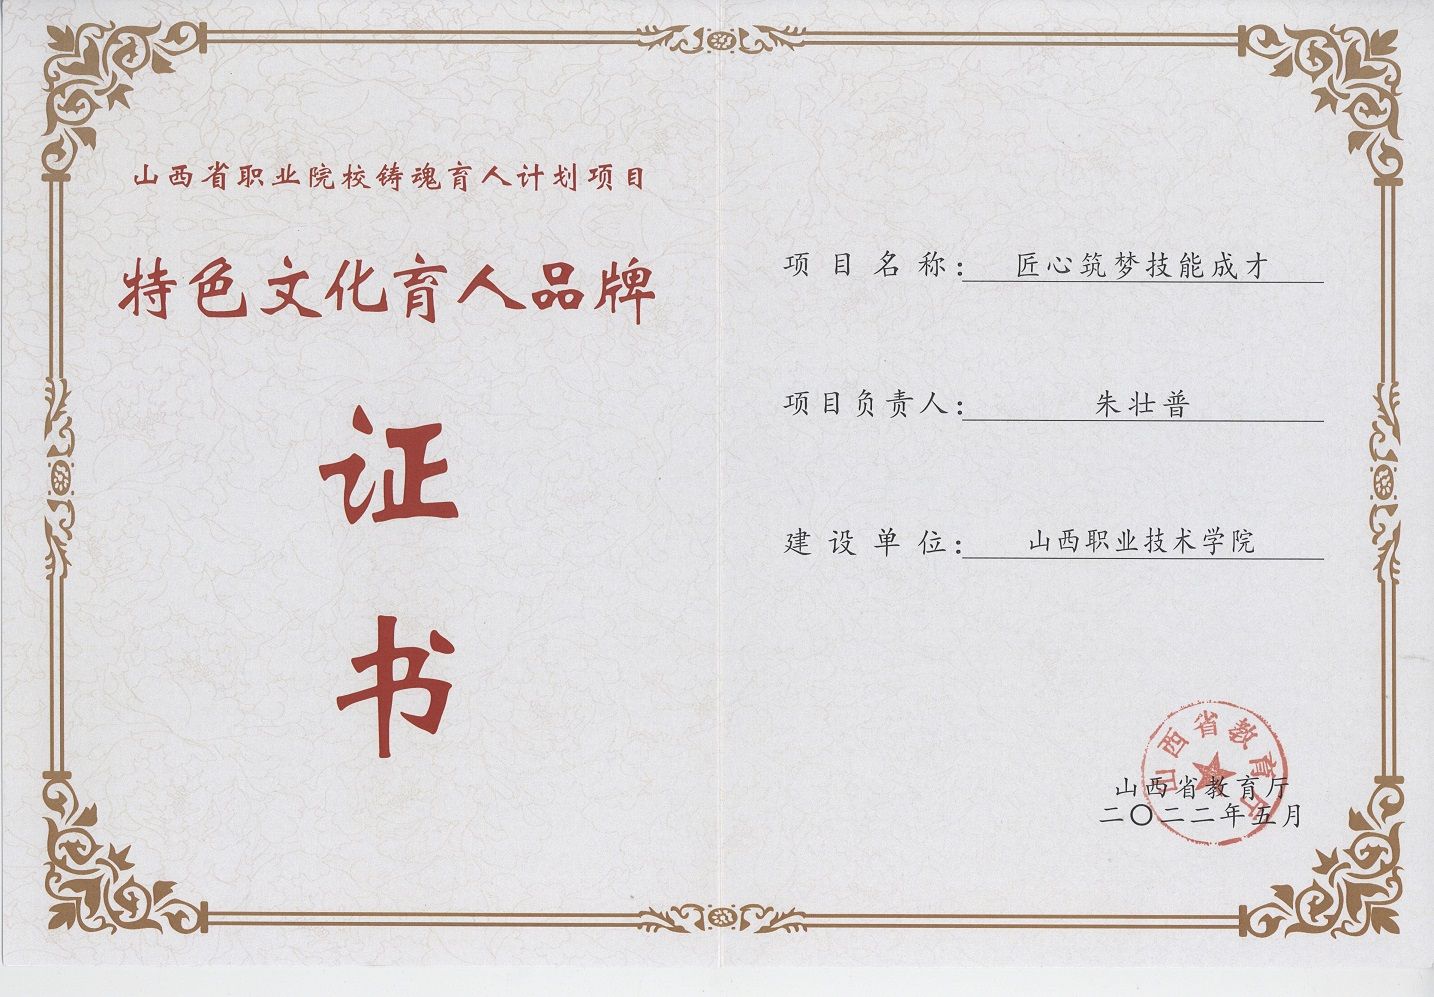 山西省职业院校铸魂育人计划项目
特色文化育人品牌
证
书
项目名称：匠心筑梦技能成才
项目负责人：朱壮普
建设单位：山西职业技术学院
山西省教育厅
山西省教育厅
二〇二二年五月